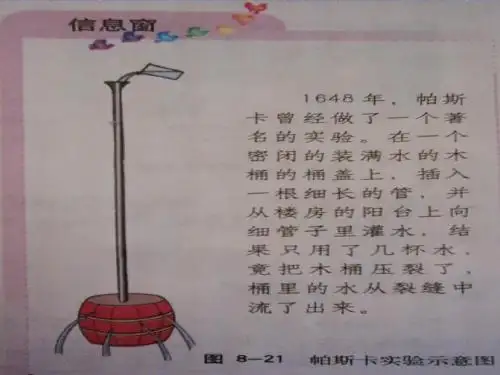 信息窗
1648年，帕斯
卡曾经做了一个著
名的实验。在一个
密闭的装满水的木
桶的桶盖上，插入
一根细长的管，并
从楼房的阳台上向
细管子里灌水，结
果只用了几杯水，
竟把木桶压裂了，
桶里的水从裂缝中
流了出来。
图 8—21 帕斯卡实验示意图